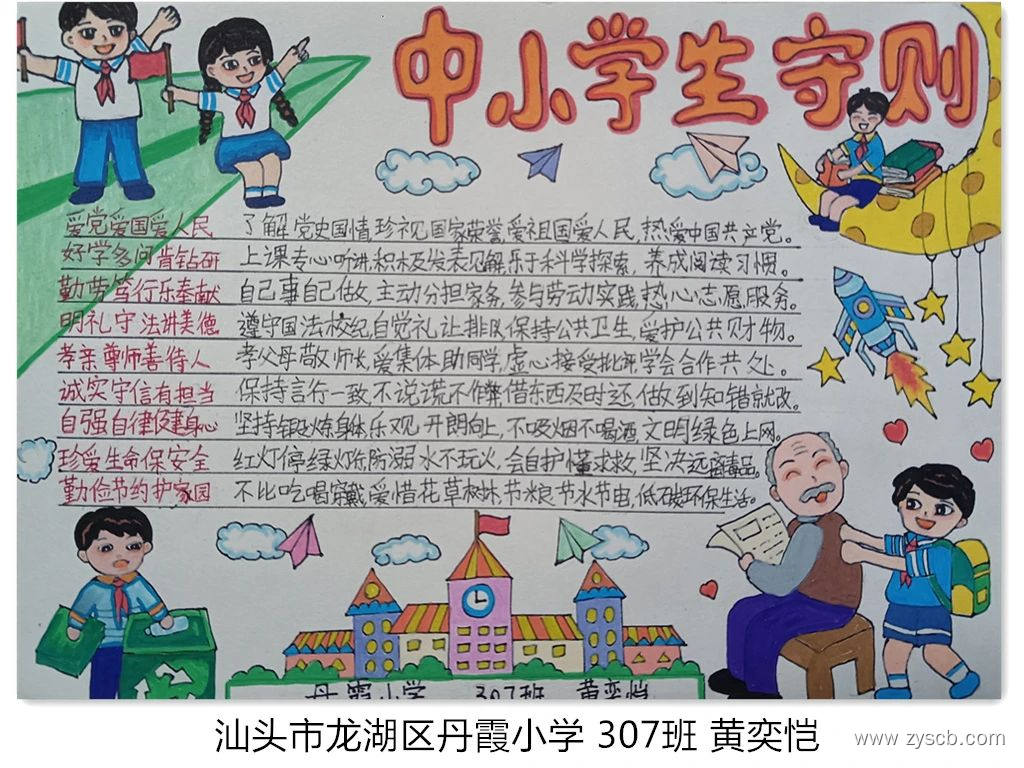 中小学生守则
爱党爱国爱人民 了解党史国情,珍视国家荣誉,爱祖国爱人民,热爱中国共产党。
好学多问肯钻研 上课专心听讲,积极发表见解,乐于科学探索,养成阅读习惯。
勤劳笃行乐奉献 自己事自己做,主动分担家务,参与劳动实践,热心志愿服务。
明礼守法讲美德 遵守国法校纪,自觉礼让排队,保持公共卫生,爱护公共财物。
孝亲尊师善待人 孝父母敬师长,爱集体助同学,虚心接受批评,学会合作共处。
诚实守信有担当 保持言行一致,不说谎不作弊,借东西及时还,做到知错就改。
自强自律健身心 坚持锻炼身体,乐观开朗向上,不吸烟不喝酒,文明绿色上网。
珍爱生命保安全 红灯停绿灯行,防溺水不玩火,会自护懂求救,坚决远离毒品。
勤俭节约护家园 不比吃喝穿戴,爱惜花草树木,节粮节水节电,低碳环保生活。
丹霞小学 307班 黄奕恺
汕头市龙湖区丹霞小学 307班 黄奕恺
www.zyscb.com